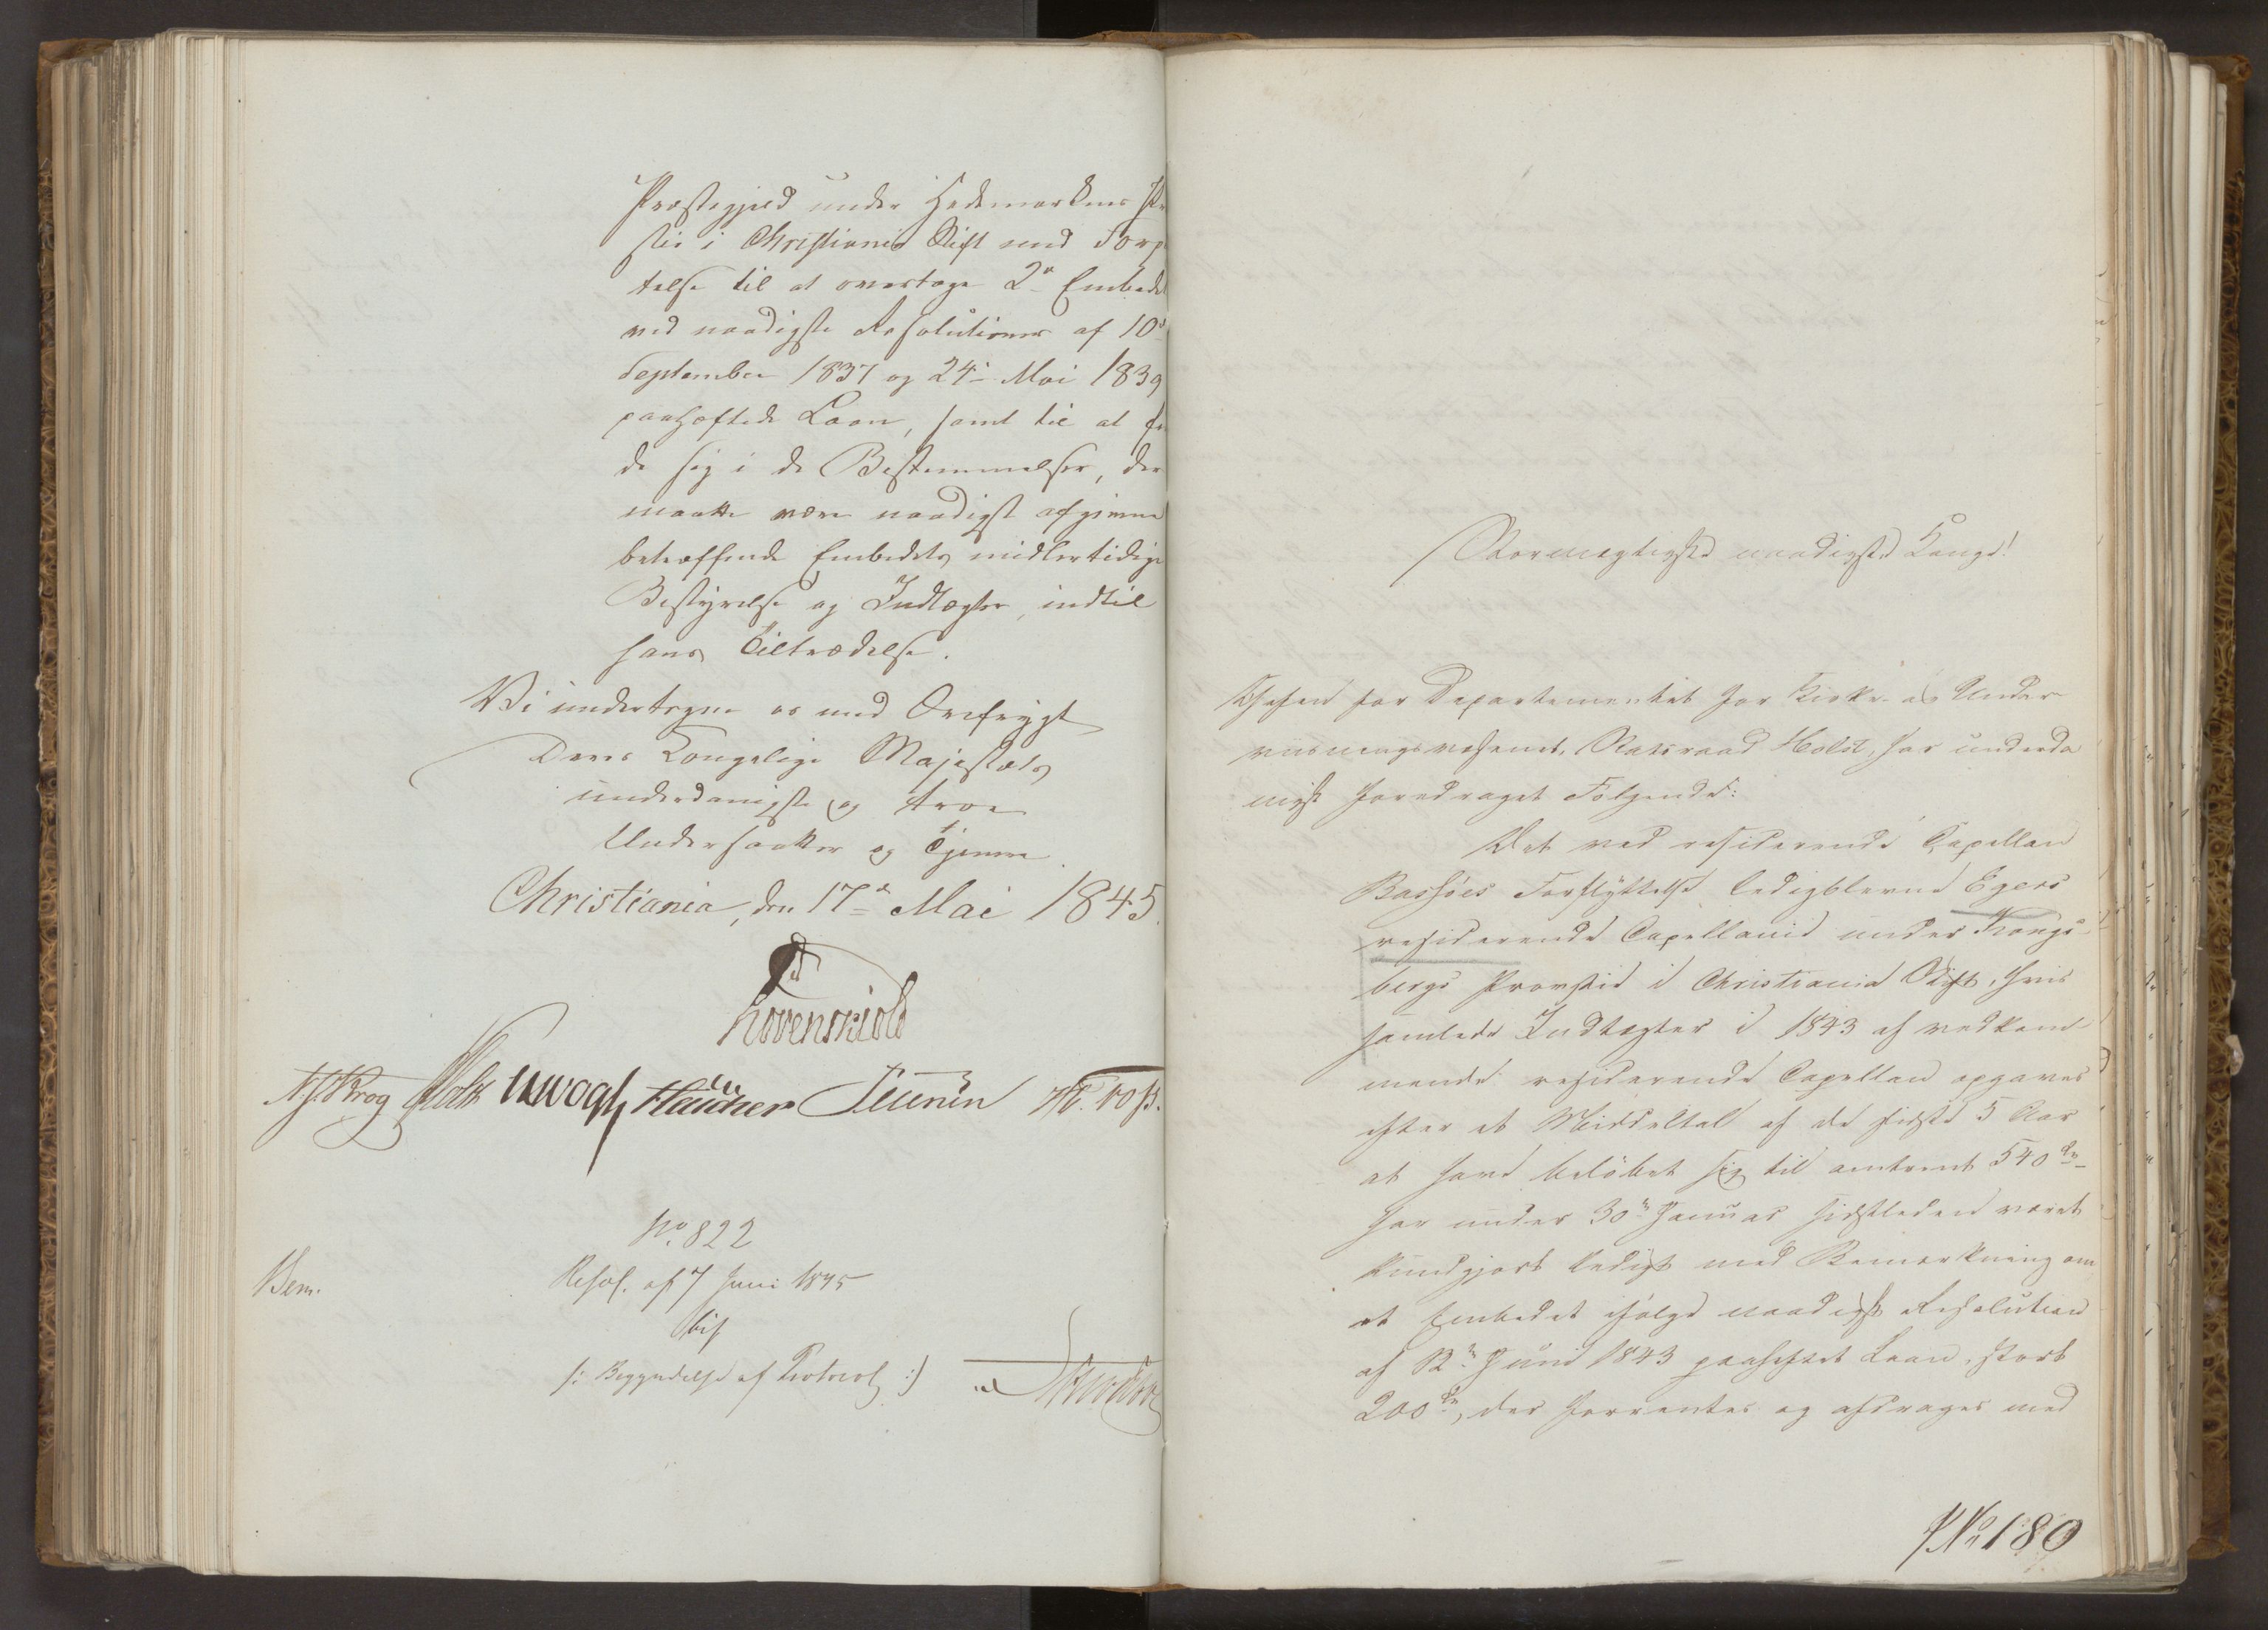 Præstegjeld under Hedemarkens Pr
sti i Christiania Stift med Forp
telse til at overtage 2de Embedet
ved naadigste Resolutioner af 10de
September 1837 og 24de Mai 1839
paaheftede Laan, samt til at fin
de sig i de Bestemmelser, der
maatte være naadigst afgivne
betræffende Embedets midlertidige
Bestyrelse og Indtægter, indtil
hans Tiltrædelse.
Vi undertegne os med Ærefrygt
Deres Kongelige Majestæts
underdanigste og troe
Undersaatter og Tjenere.
Christiania, den 17de Mai 1845.
Løvenskiold
N. J. Krog Holst Vogt
No. 822
Resol. af 7 Juni 1845
Bem.
bif
/: Begyndelse af Protocol :/
Stormægtigste naadigste Konge!
Chefen for Departementet for Kirke- og Under
viisningsvæsenet, Statsraad Holst, har underda
nigst foredraget Følgende:
Det ved residerende Capellan
Bassøes Forflyttelse ledigblevne Egers
residerende Capellanie under Kongs
bergs Provstie i Christiania Stift, hvis
samlede Indtægter i 1843 af vedkom
mende residerende Capellan opgaves
efter et Middeltal af de sidste 5 Aar
at have beløbet sig til omtrent 540 Spd
har under 30te Januar sidstleden været
kundgjort ledigt med Bemærkning om
at Embedet ifølge naadigst Resolution
af 12te Juni 1843 paaheftet Laan, stort
200 Spd, der forrentes og afdrages med
No 180